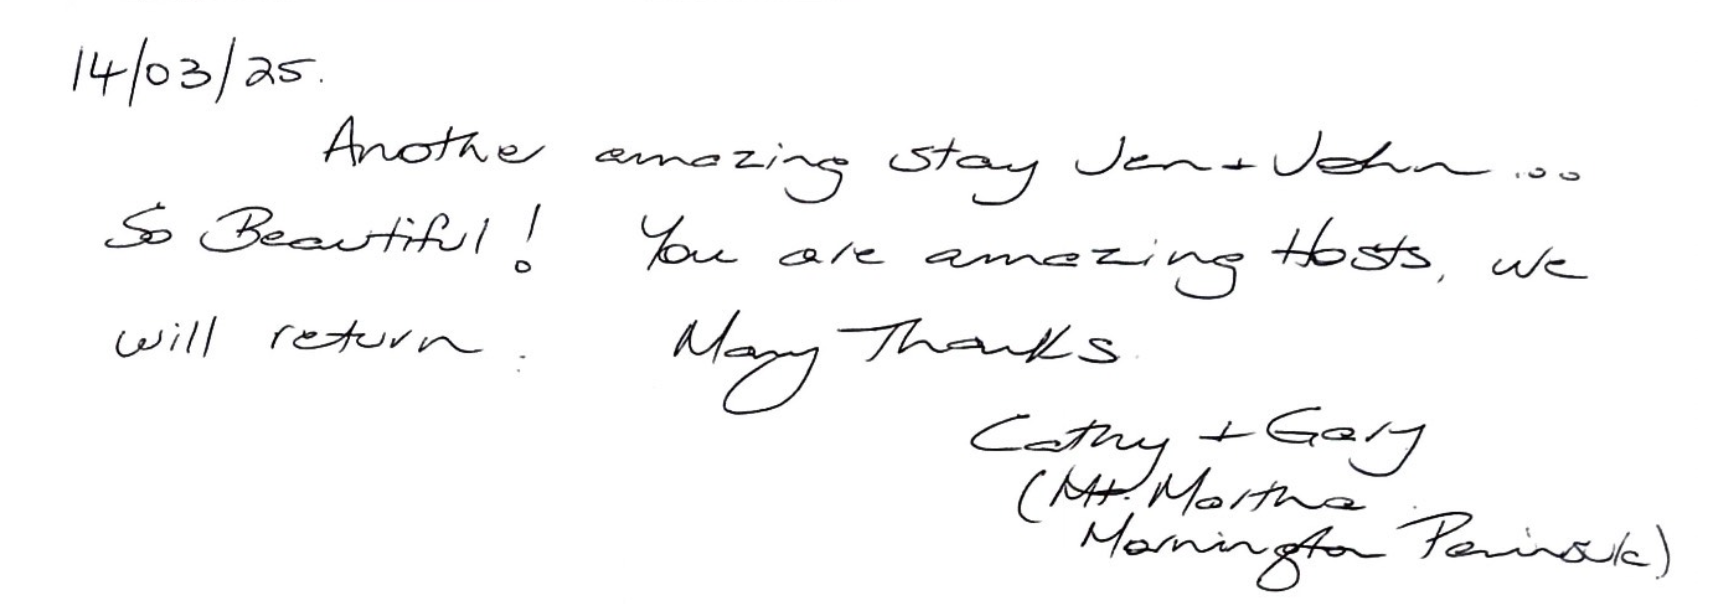 14/03/25.
Another amazing stay Jen + John ...
So Beautiful! You are amazing Hosts, we
will return. Many Thanks
Cathy + Gary
(Mt. Martha
Mornington Peninsula)